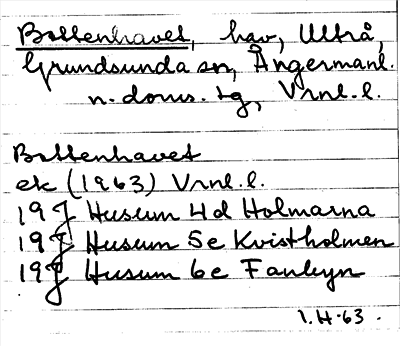 Bottenhavet, hav, Ultrå,
Grundsunda sn, Ångermanl.
n. doms. tg, Vrnl. l.
Bottenhavet
ek (1963) Vrnl. l.
19J Husum 4d Holmarna
19J Husum 5e Kvistholmen
19J Husum 6e Fanbyn
1. H. 63.